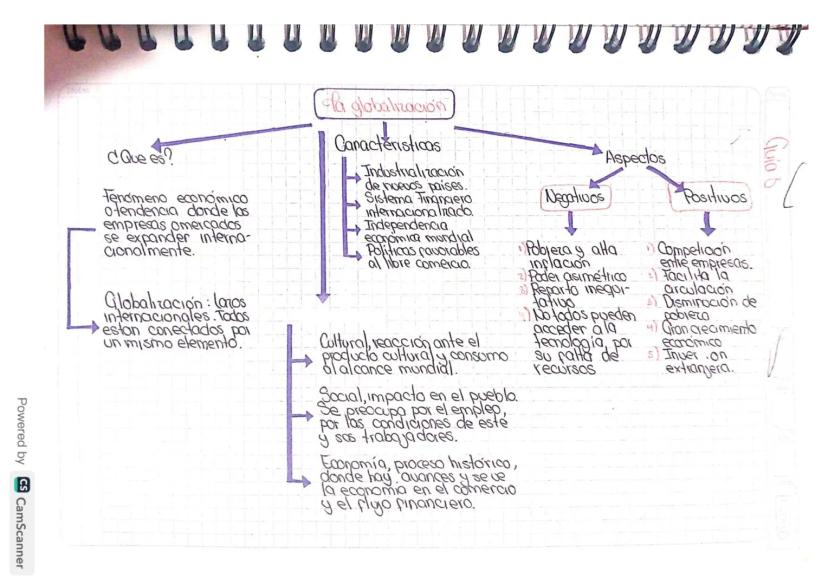 La globalización
¿Que es?
Fenómeno económico
o tendencia donde las
empresas o mercados
se expander interna-
cionalmente.
Globalización: lazos
internacionales. Todos
estan conectados por
un mismo elemento.
Características
Industrialización
de nuevos países.
Sistema financiero
internacionalizado.
Independencia
económica mundial
Políticas favorables
al libre comercio.
Cultural, reacción ante el
producto cultural y consumo
al alcance mundial.
Social, impacto en el pueblo.
Se preocupa por el empleo,
por las condiciones de este
y sos trabajadores.
Economía, proceso histórico,
donde hay avances y se ve
la economía en el comercio
y el flujo financiero.
Aspectos
Negativos
1) Pobreza y alta
inflación
2) Poder asimétrico
3) Reparto inequi-
tativo
No todos pueden
acceder a la
tecnología, por
su falta de
recursos
Positivos
1) Competición
entre empresas.
2) Facilita la
circulación
3) Disminución de
pobreza
4) Gran crecimiento
económico
5)
extranjera.
Guia 5
Powered by CS CamScanner